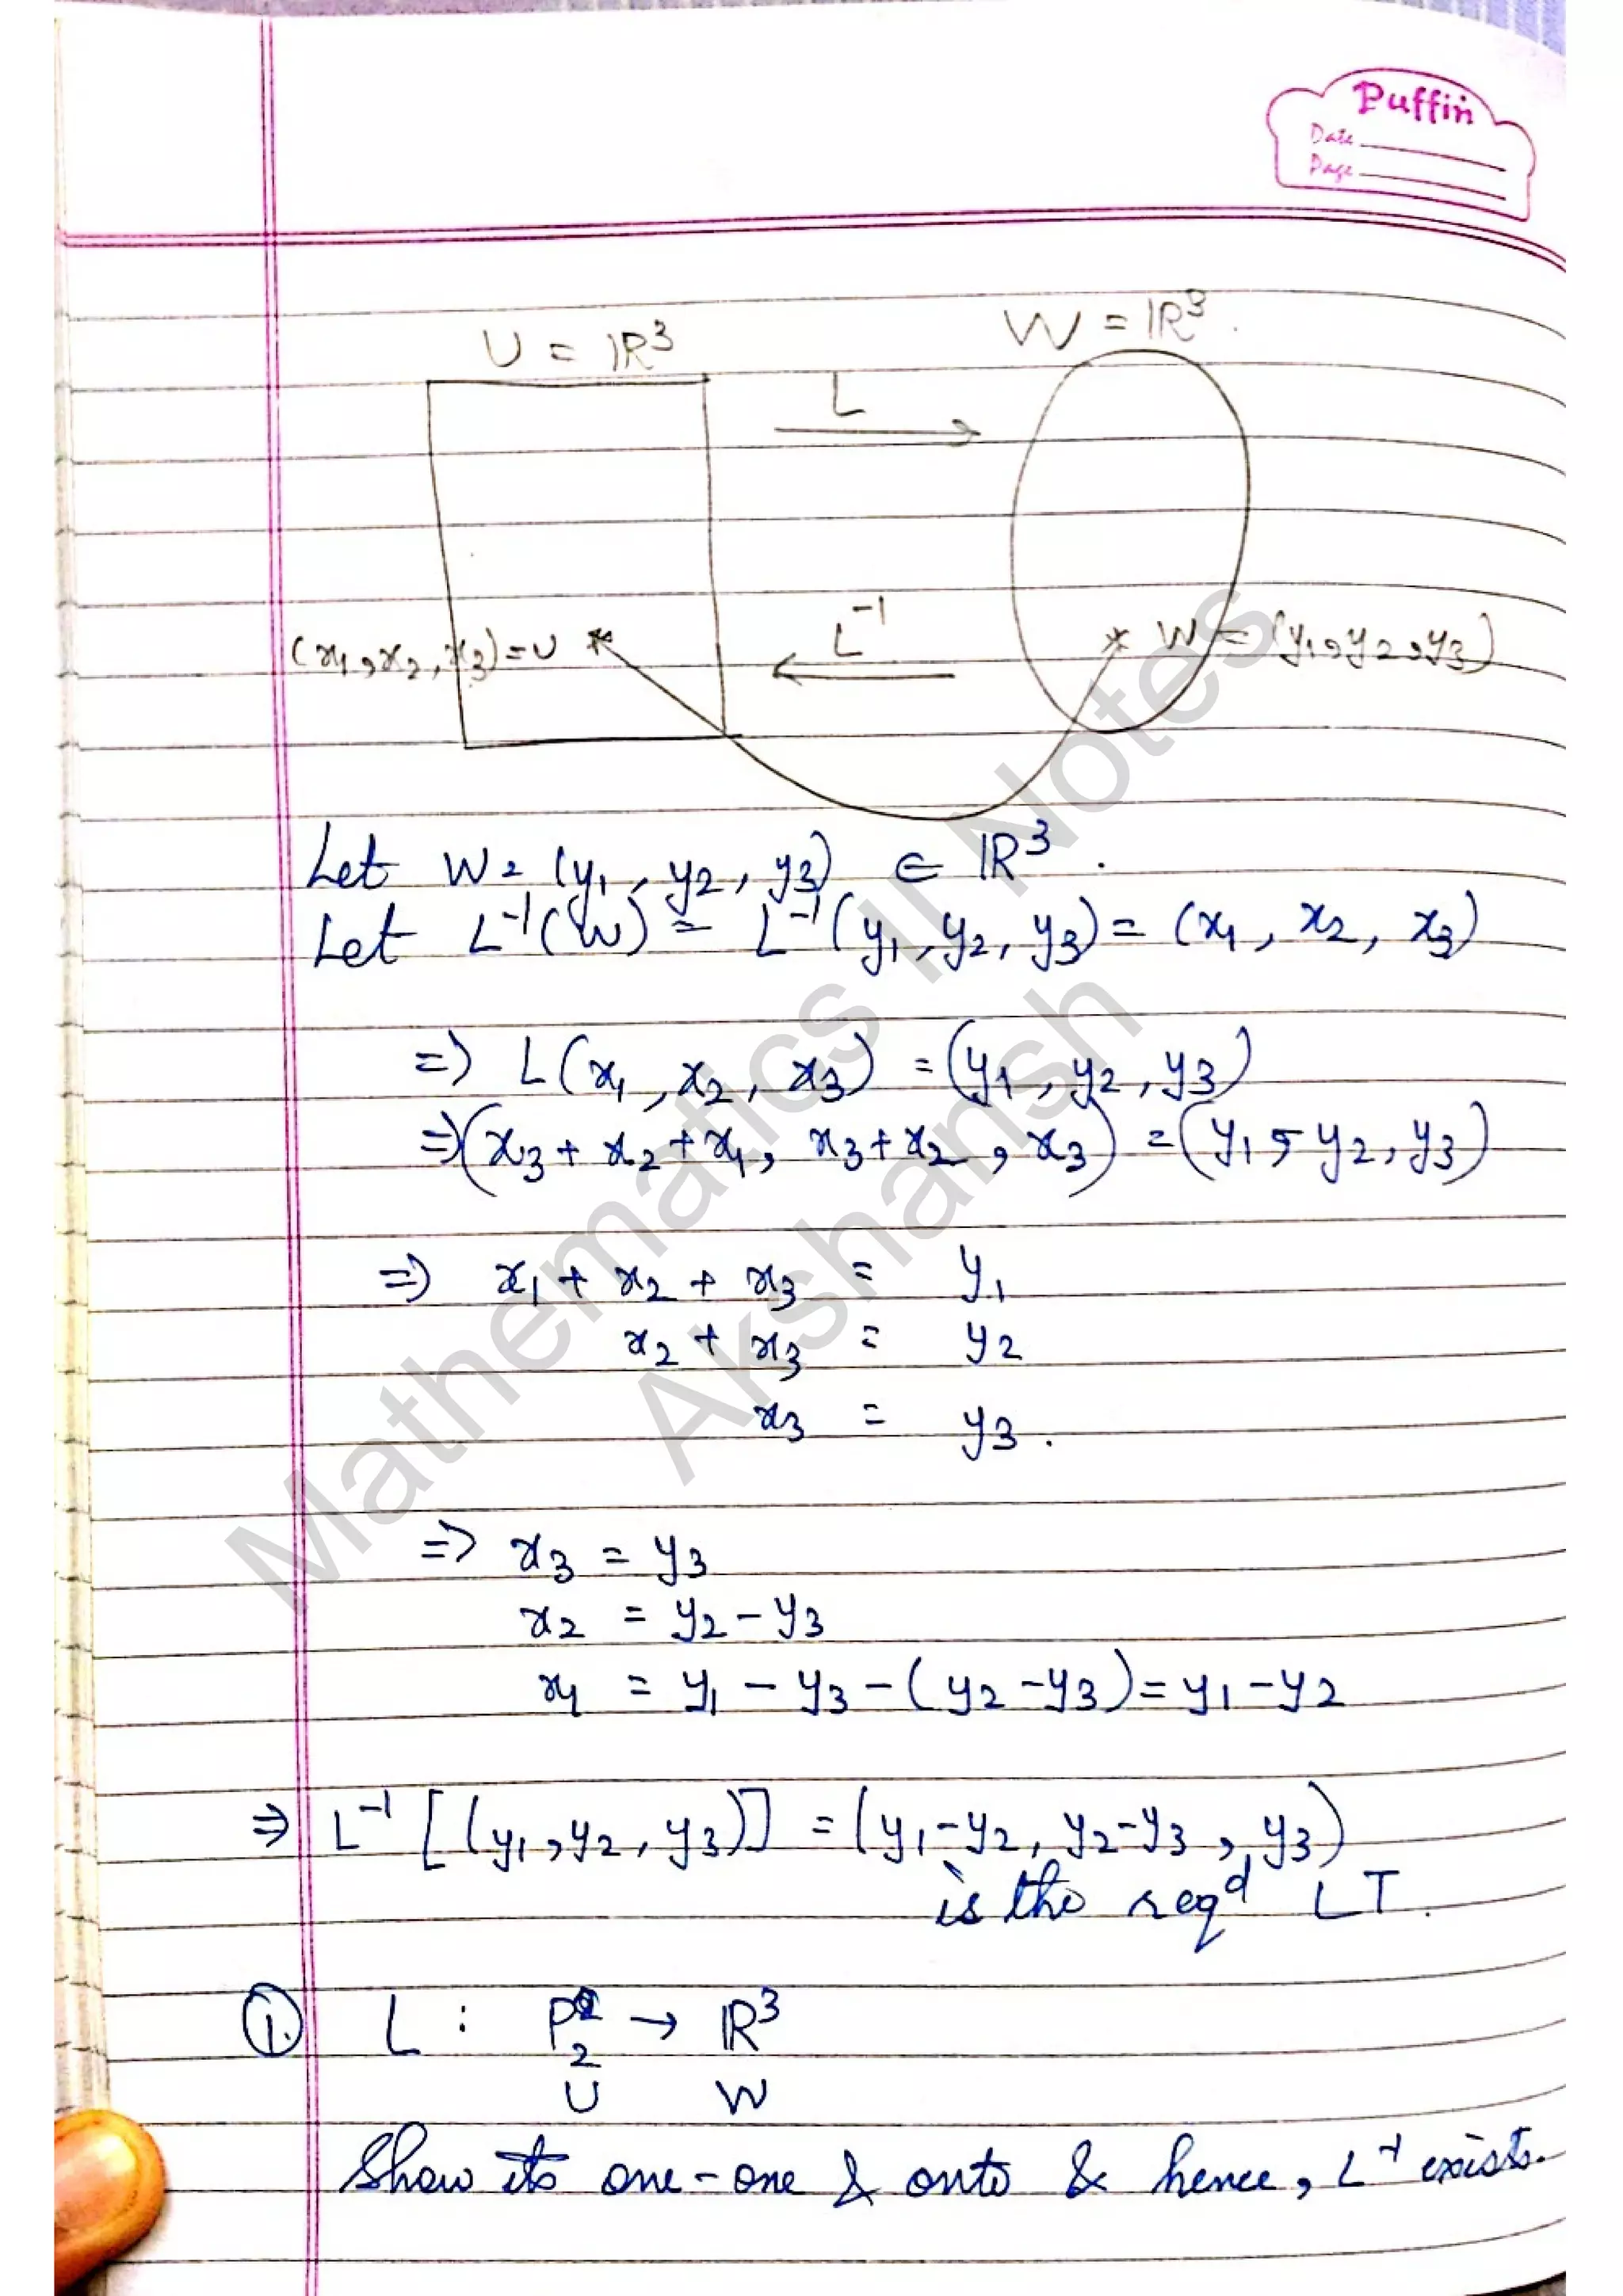 Puffin
Date
Page
U = ℝ³
W = ℝ³.
L
L⁻¹
(x₁, x₂, x₃) = U
W = (y₁, y₂, y₃)
Let W = (y₁, y₂, y₃) ∈ ℝ³.
Let L⁻¹(W) = L⁻¹(y₁, y₂, y₃) = (x₁, x₂, x₃)
=> L(x₁, x₂, x₃) = (y₁, y₂, y₃)
=> (x₃ + x₂ + x₁, x₃ + x₂, x₃) = (y₁, y₂, y₃)
=> x₁ + x₂ + x₃ = y₁
x₂ + x₃ = y₂
x₃ = y₃.
=> x₃ = y₃
x₂ = y₂ - y₃
x₁ = y₁ - y₃ - (y₂ - y₃) = y₁ - y₂
=> L⁻¹[(y₁, y₂, y₃)] = (y₁ - y₂, y₂ - y₃, y₃)
is the reqᵈ LT.
① L : P₂ → ℝ³
U W
Show its one-one & onto & hence, L⁻¹ exists.
Mathematics II Notes
Akshansh